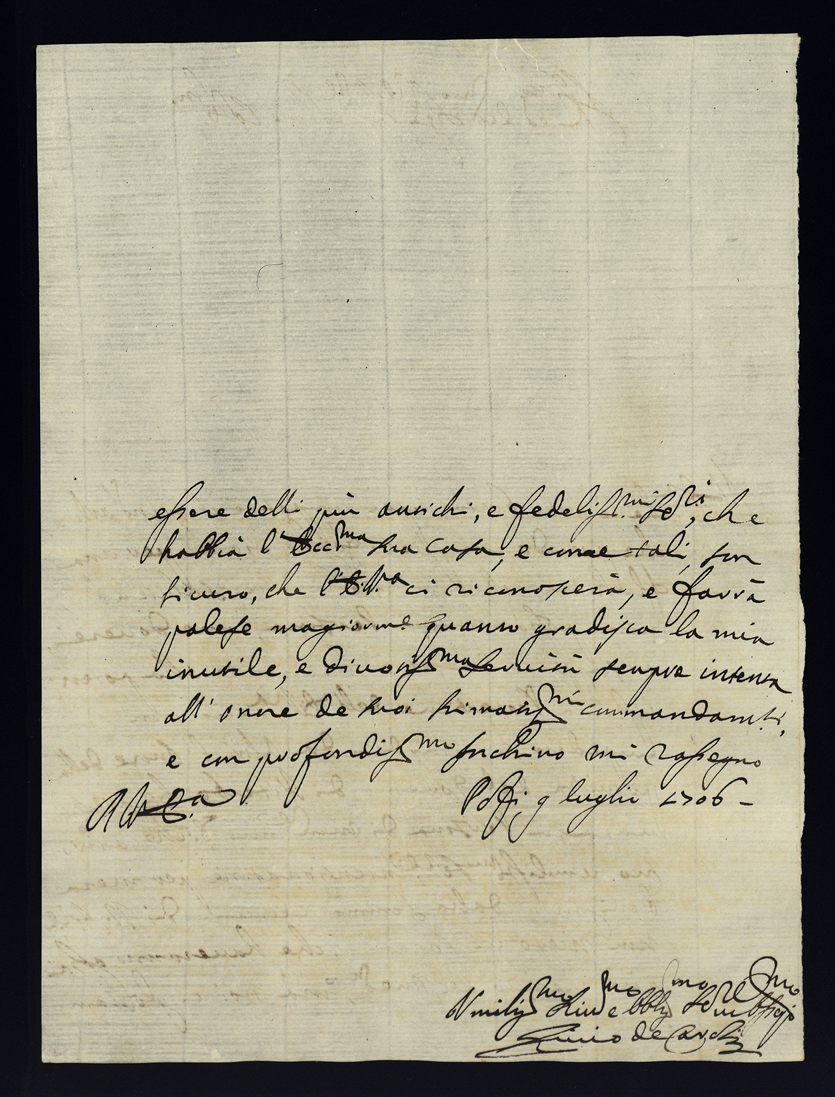 essere delli più antichi, e fedeliss.mi se.ri, che
habbia l'Ecc.ma sua Casa, e come tali, son
sicuro, che l'E.V.a ci riconoscerà, e farrà
palese magiorm.e quanto gradisca la mia
inutile, e divotiss.ma servitù sempre intenta
all'onore de suoi stimatiss.mi commandam.ti,
e con profondiss.mo inchino mi rassegno
Pofi 9 luglio 1706 -
Umiliss.mo Div.mo e obblig.mo se.re
de